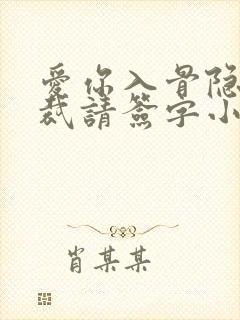 愛你入骨隐
裁請簽字小
肖某某